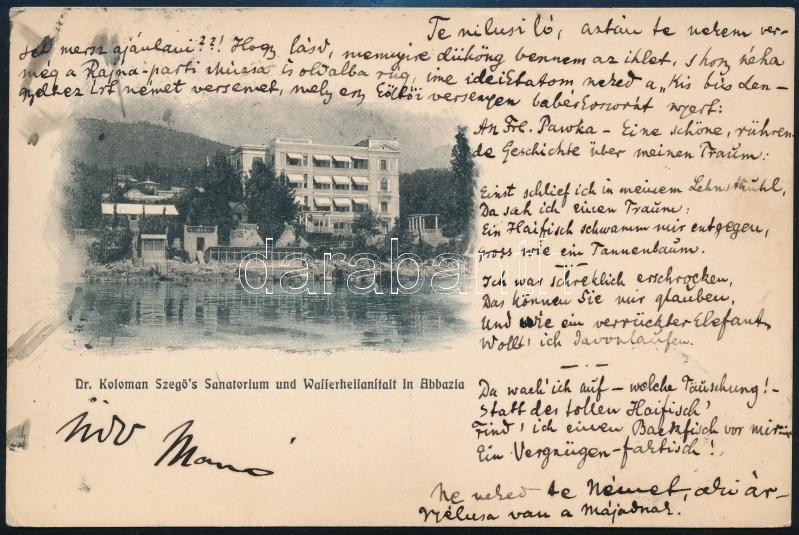 Te nilusi ló, aztán te nekem ver-
set mersz ajánlani??! Hogy lásd, mennyire dühöng bennem az ihlet, s hogy néha
még a Rajna-parti múzsa is oldalba rúg, ime ideiktatom neked a „Kis bús Len-
gyelhez írt német versemet, mely egy költői versenyen babérkoszorút nyert:
An Frl. Pawka - Eine schöne, rühren-
de Geschichte über meinen Traum:
Einst schlief ich in meinem Lehnstuhl,
Da sah ich einen Traum:
Ein Haifisch schwamm mir entgegen,
Gross wie ein Tannenbaum.
Ich war schreklich erschrocken,
Das können Sie mir glauben,
Und wie ein verrückter Elefant
Wollt' ich davonlaufen.
Da wach' ich auf - welche Täuschung! -
Statt des tollen Haifisch'
Find' ich einen Backfisch vor mir -
Ein Vergnügen - faktisch!
Ne neked te Német, aki ár-
nyélusa van a májadnak.
darabanth
Dr. Koloman Szegö's Sanatorium und Wasserheilanstalt in Abbazia
üdv
Manó